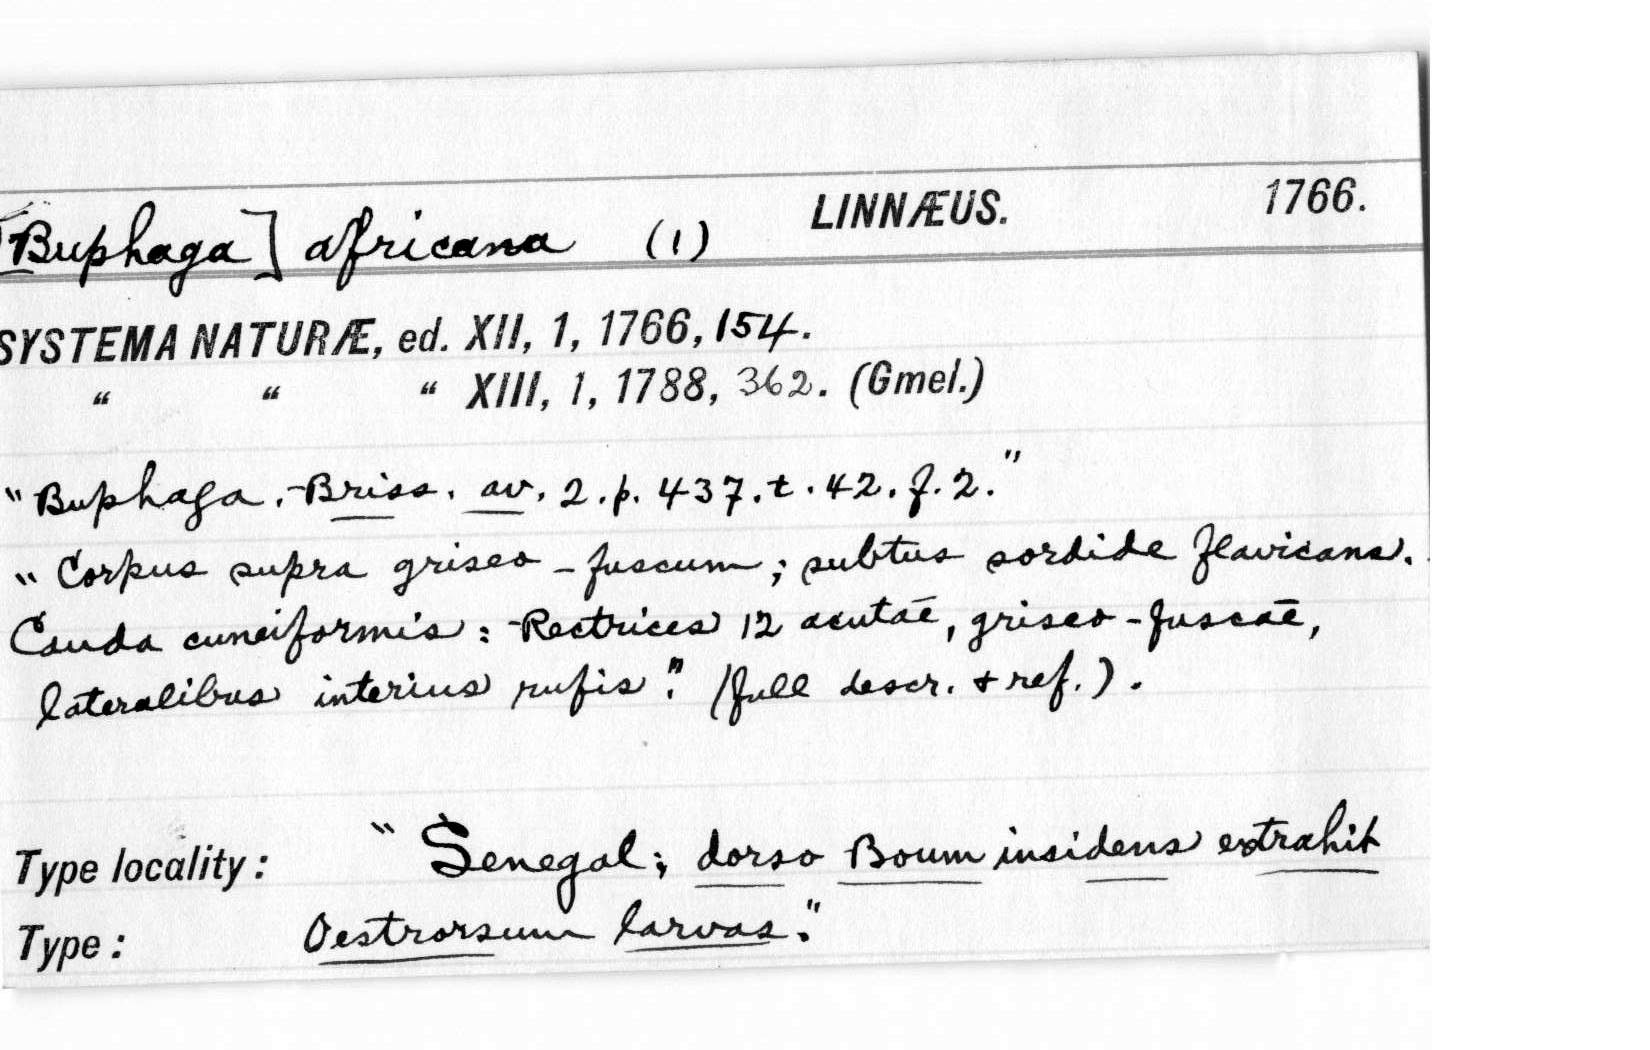 [Buphaga] africana (1) LINNÆUS. 1766.
SYSTEMA NATURÆ, ed. XII, 1, 1766, 154.
“ “ “ XIII, 1, 1788, 362. (Gmel.)
"Buphaga. Briss. av. 2. p. 437. t. 42. f. 2."
"Corpus supra griseo-fuscum; subtus sordide flavicans.
Cauda cuneiformis: Rectrices 12 acutae, griseo-fuscae,
lateralibus interius rufis." (full descr. + ref.).
Type locality: "Senegal; dorso Boum insidens extrahit
Type: Oestrorsum larvas."